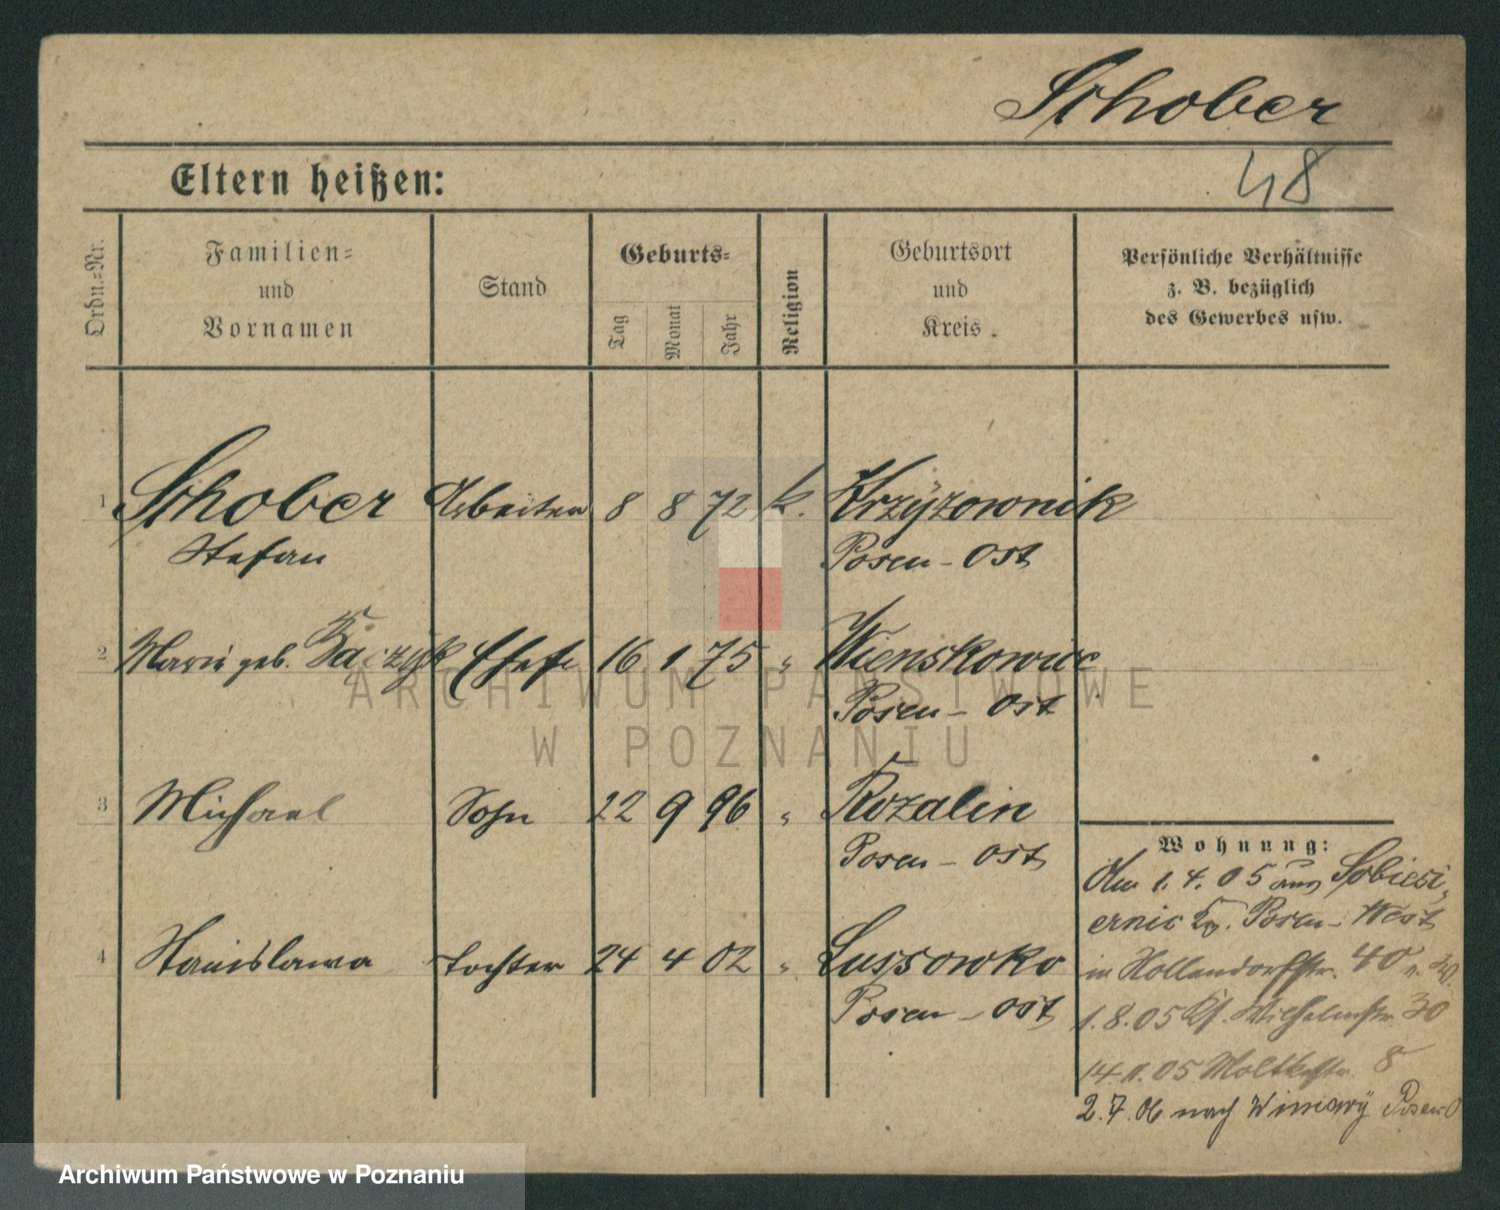 Schober
48
Eltern heißen:
Ordn.-Nr.
Familien-
und
Vornamen
Stand
Geburts-
Tag
Monat
Jahr
Religion
Geburtsort
und
Kreis
Persönliche Verhältnisse
z. B. bezüglich
des Gewerbes usw.
1 Schober Arbeiter 8 8 72 k. Krzyżownik
Stefan Posen-Ost
2 Marie geb. Ehefr. 16 1 75 " Wienskowic
Posen-Ost
3 Michael Sohn 22 9 96 " Rozalin
Posen-Ost
4 Stanislawa Tochter 24 4 02 " Lussowko
Posen-Ost
Wohnung:
Am 1.4.05 aus Sobiesi-
ernie Posen-West
in Hollendorfstr. 40
1.8.05 Wilhelmstr. 30
14.11.05 Moltkestr. 8
2.7.06 nach Winiary Posen O
ARCHIWUM PAŃSTWOWE
W POZNANIU
Archiwum Państwowe w Poznaniu